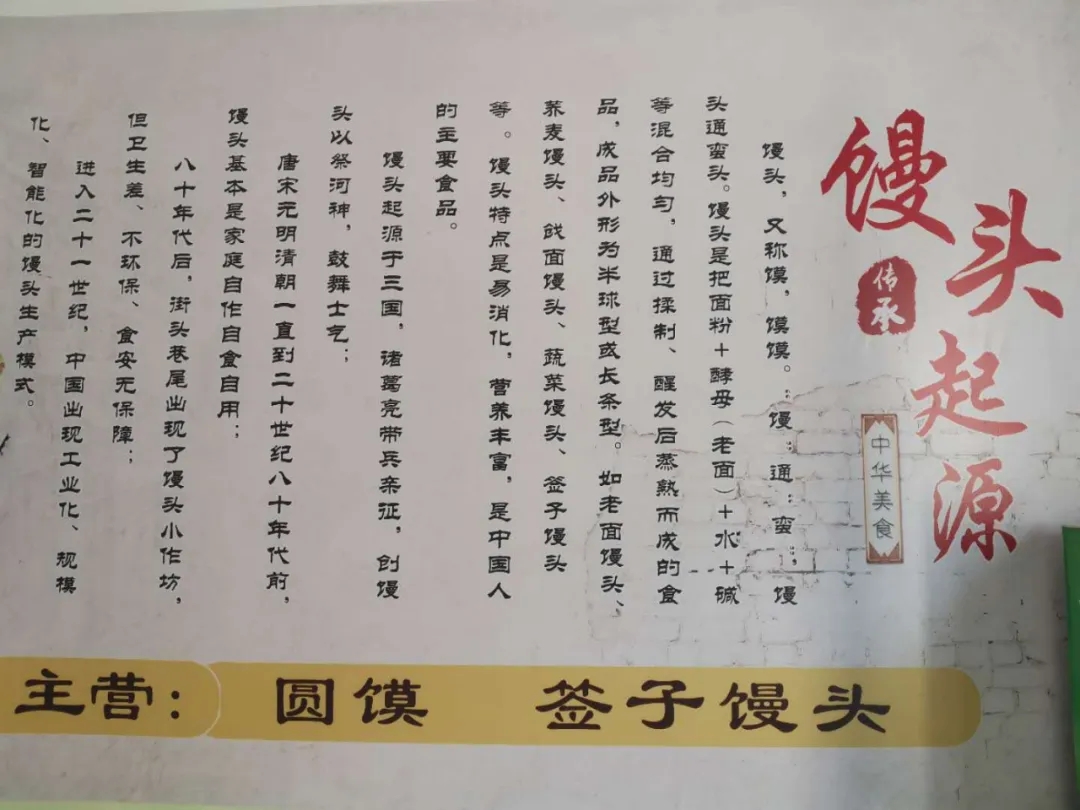 馒头起源
传承
中华美食
馒头，又称馍，馍馍。：馒：通：蛮：，馒
头通蛮头。馒头是把面粉＋酵母（老面）＋水＋碱
等混合均匀，通过揉制、醒发后蒸熟而成的食
品，成品外形为半球型或长条型。如老面馒头、
荞麦馒头、戗面馒头、蔬菜馒头、签子馒头
等。馒头特点是易消化，营养丰富，是中国人
的主要食品。
馒头起源于三国，诸葛亮带兵亲征，创馒
头以祭河神，鼓舞士气；
唐宋元明清朝一直到二十世纪八十年代前，
馒头基本是家庭自作自食自用；
八十年代后，街头巷尾出现了馒头小作坊，
但卫生差、不环保、食安无保障；
进入二十一世纪，中国出现工业化、规模
化、智能化的馒头生产模式。
主营：圆馍 签子馒头